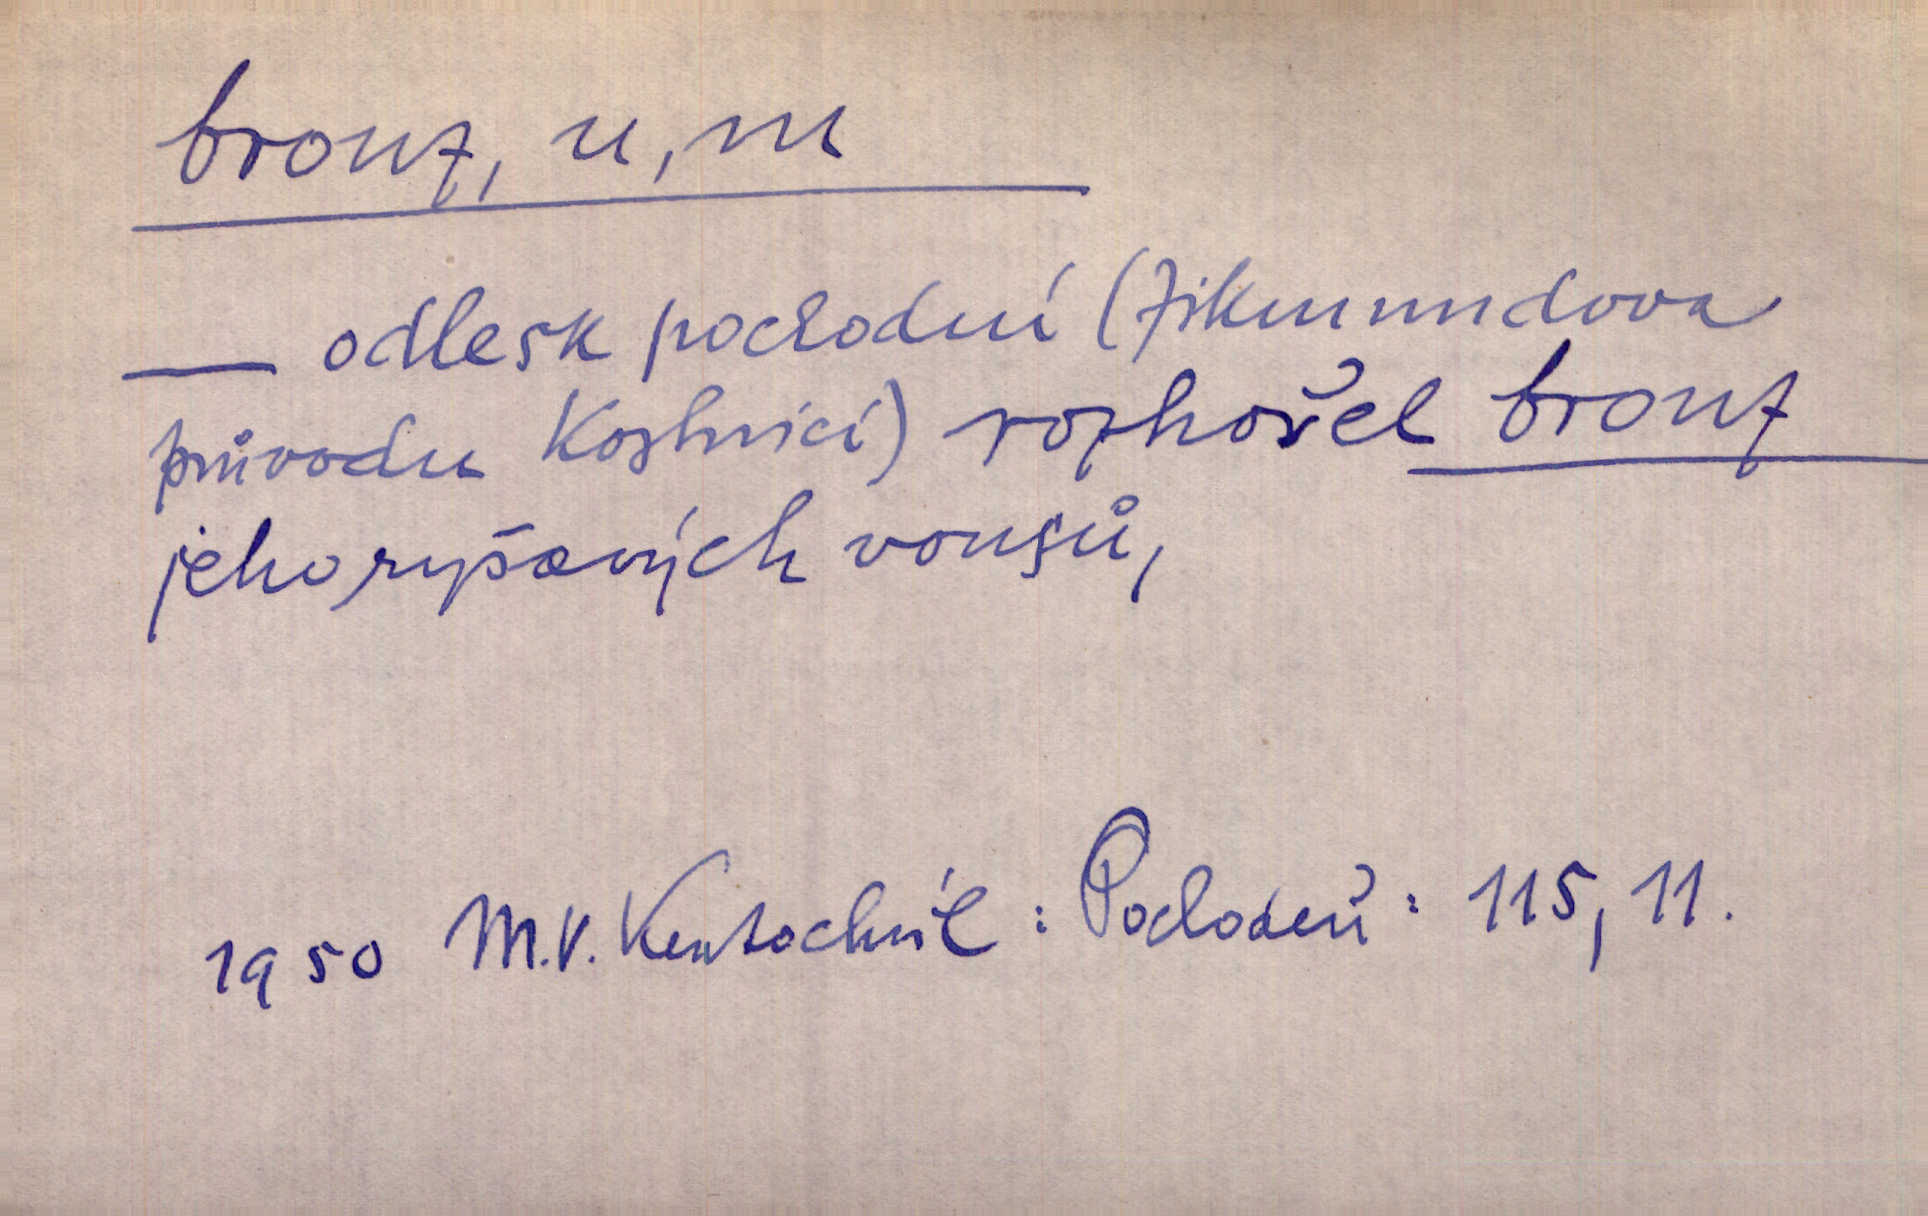 bronz, u, m
— odlesk pochodní (Zikmundova
průvodu Kostnicí) rozhořel bronz
jeho ryšavých vousů,
1950 M.V. Kratochvíl : Pochodeň : 115, 11.